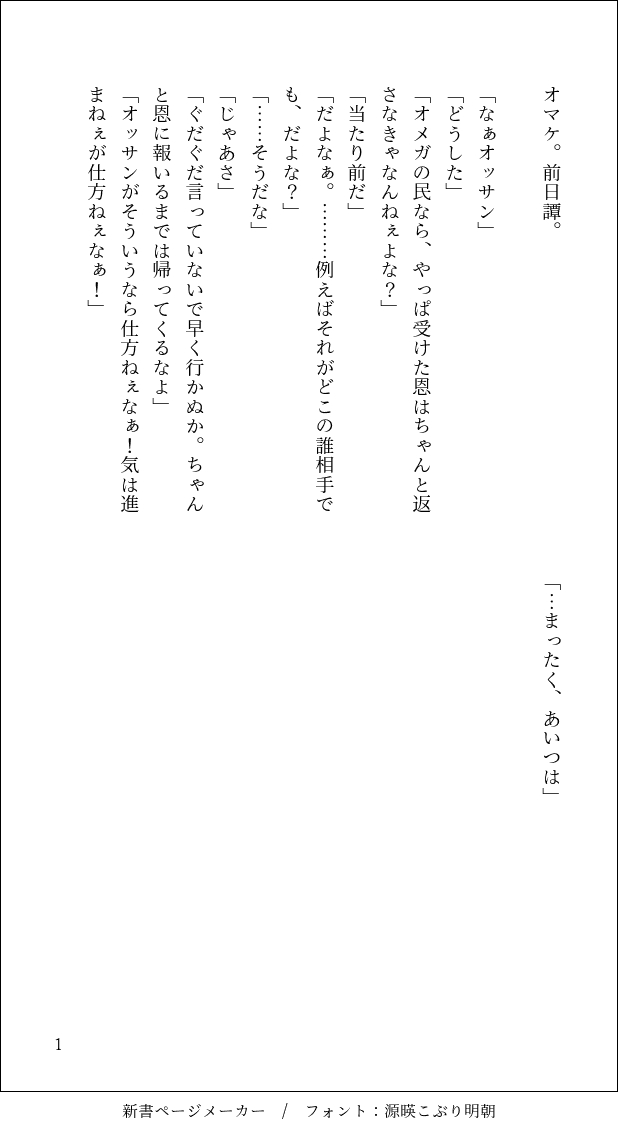 オマケ。前日譚。
「なぁオッサン」
「どうした」
「オメガの民なら、やっぱ受けた恩はちゃんと返
さなきゃなんねぇよな？」
「当たり前だ」
「だよなぁ。………例えばそれがどこの誰相手で
も、だよな？」
「……そうだな」
「じゃあさ」
「ぐだぐだ言っていないで早く行かぬか。ちゃん
と恩に報いるまでは帰ってくるなよ」
「オッサンがそういうなら仕方ねぇなぁ！気は進
まねぇが仕方ねぇなぁ！」
「…まったく、あいつは」
1
新書ページメーカー　/　フォント：源暎こぶり明朝